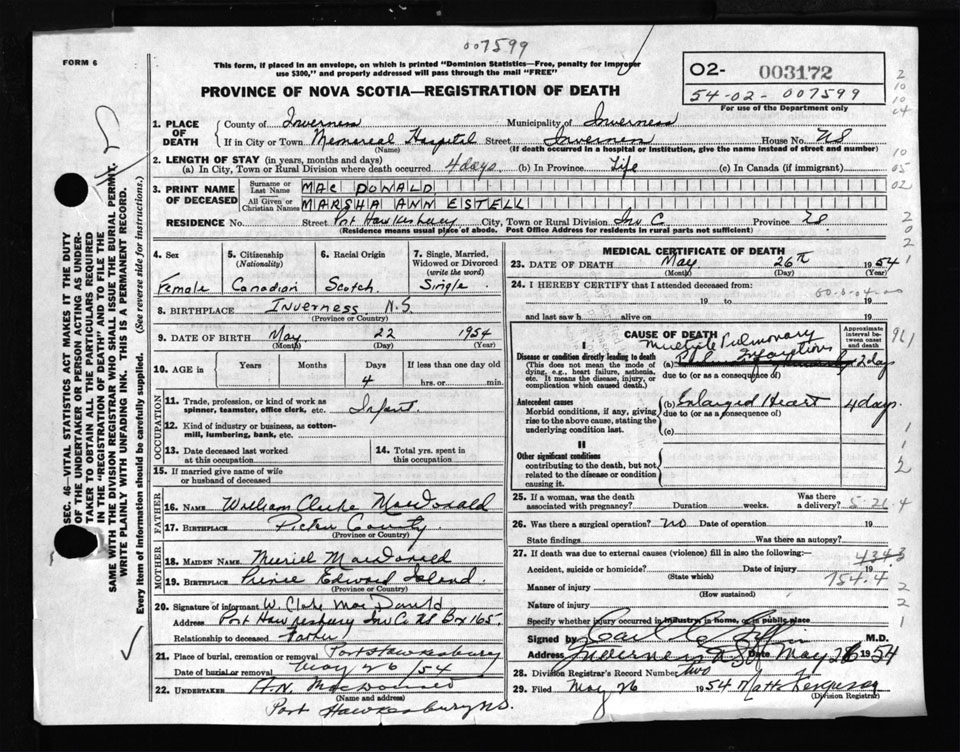 007599
FORM 6
This form, if placed in an envelope, on which is printed "Dominion Statistics—Free, penalty for improper
use $300," and properly addressed will pass through the mail "FREE"
PROVINCE OF NOVA SCOTIA—REGISTRATION OF DEATH
02- 003172
54-02-007599
For use of the Department only
1. PLACE OF DEATH
County of Inverness Municipality of Inverness
If in City or Town Memorial Hospital Street Inverness House No. NS
(Name) (If death occurred in a hospital or institution, give the name instead of street and number)
2. LENGTH OF STAY (in years, months and days)
(a) In City, Town or Rural Division where death occurred 4 days (b) In Province Life (c) In Canada (if immigrant)
3. PRINT NAME OF DECEASED
Surname or Last Name MAC DONALD
All Given or Christian Names MARSHA ANN ESTELL
RESIDENCE No. Street Port Hawkesbury City, Town or Rural Division Inv C. Province NS
(Residence means usual place of abode. Post Office Address for residents in rural parts not sufficient)
4. Sex 5. Citizenship (Nationality) 6. Racial Origin 7. Single, Married, Widowed or Divorced (write the word)
Female Canadian Scotch Single
8. BIRTHPLACE Inverness N.S
(Province or Country)
9. DATE OF BIRTH May 22 1954
(Month) (Day) (Year)
10. AGE in Years Months Days If less than one day old
4 hrs. or min.
OCCUPATION
11. Trade, profession, or kind of work as spinner, teamster, office clerk, etc. Infant
12. Kind of industry or business, as cotton-mill, lumbering, bank, etc.
13. Date deceased last worked at this occupation
14. Total yrs. spent in this occupation
15. If married give name of wife or husband of deceased
FATHER
16. NAME William Clarke MacDonald
17. BIRTHPLACE Pictou County
(Province or Country)
MOTHER
18. MAIDEN NAME Muriel MacDonald
19. BIRTHPLACE Prince Edward Island
(Province or Country)
20. Signature of informant W. Clarke MacDonald
Address Port Hawkesbury Inv Co NS Box 165.
Relationship to deceased Father
21. Place of burial, cremation or removal Port Hawkesbury
Date of burial or removal May 26/54
22. UNDERTAKER MacDonald
(Name and address)
Port Hawkesbury NS.
MEDICAL CERTIFICATE OF DEATH
23. DATE OF DEATH May 26th 1954
(Month) (Day) (Year)
24. I HEREBY CERTIFY that I attended deceased from:
19 to 19
and last saw h alive on 19
CAUSE OF DEATH
Approximate interval between onset and death
I
Disease or condition directly leading to death
(This does not mean the mode of dying, e.g., heart failure, asthenia, etc. It means the disease, injury, or complication which caused death.)
Multiple Pulmonary
(a) Infarctions 2 days
due to (or as a consequence of)
Antecedent causes
Morbid conditions, if any, giving rise to the above cause, stating the underlying condition last.
(b) Enlarged Heart 4 days
due to (or as a consequence of)
(c)
II
Other significant conditions
contributing to the death, but not related to the disease or condition causing it.
25. If a woman, was the death associated with pregnancy? Duration weeks. Was there a delivery?
26. Was there a surgical operation? NO Date of operation 19
State findings Was there an autopsy?
27. If death was due to external causes (violence) fill in also the following:—
Accident, suicide or homicide? Date of injury 19
(State which)
754.4
Manner of injury
(How sustained)
Nature of injury
Specify whether injury occurred in industry in home, or in public place
Signed by M.D.
Address Inverness N.S. Date May 26 1954
28. Division Registrar's Record Number two
29. Filed May 26 1954 Matt Ferguson
(Division Registrar)
SEC. 46—VITAL STATISTICS ACT MAKES IT THE DUTY
OF THE UNDERTAKER OR PERSON ACTING AS UNDER-
TAKER TO OBTAIN ALL THE PARTICULARS REQUIRED
IN THE "REGISTRATION OF DEATH" AND TO FILE THE
SAME WITH THE DIVISION REGISTRAR WHO SHALL ISSUE THE BURIAL PERMIT.
WRITE PLAINLY WITH UNFADING INK. THIS IS A PERMANENT RECORD.
Every item of information should be carefully supplied. (See reverse side for instructions.)